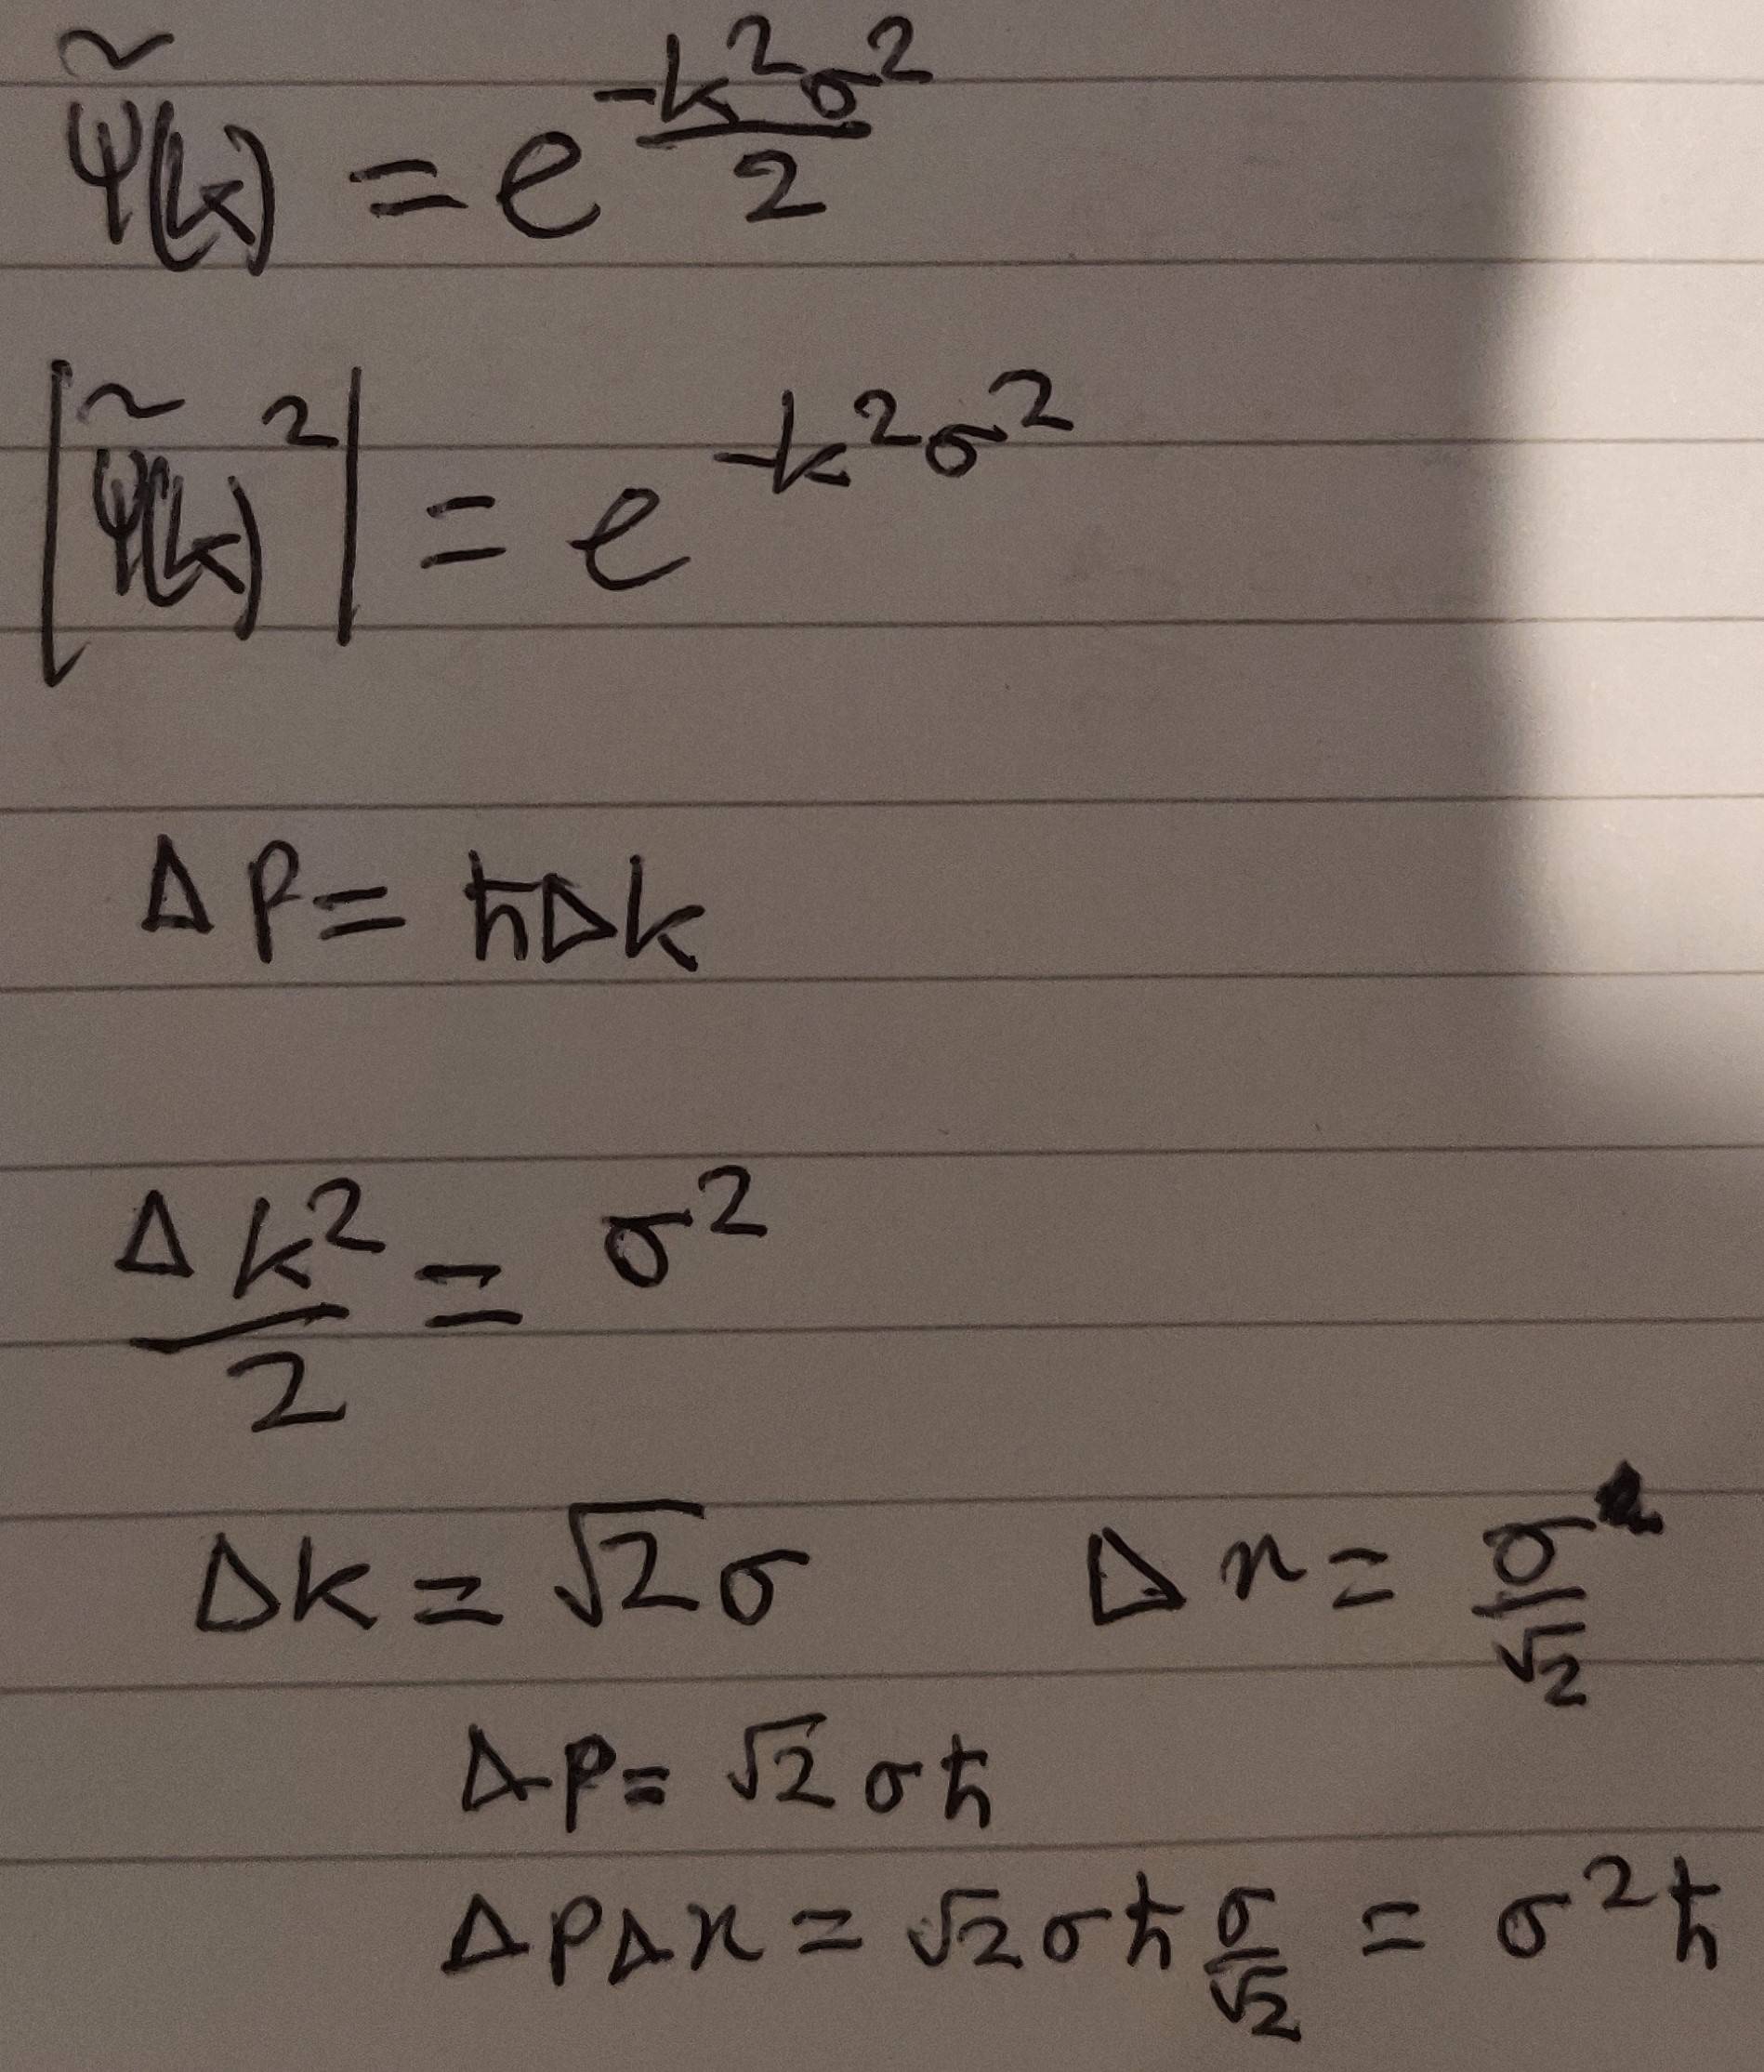 ψ̃(k) = e^{-k²σ²/2}
|ψ̃(k)²| = e^{-k²σ²}
Δp = ħΔk
Δk²/2 = σ²
Δk = √2σ Δx = σ/√2
Δp = √2σħ
ΔpΔx = √2σħ σ/√2 = σ²ħ